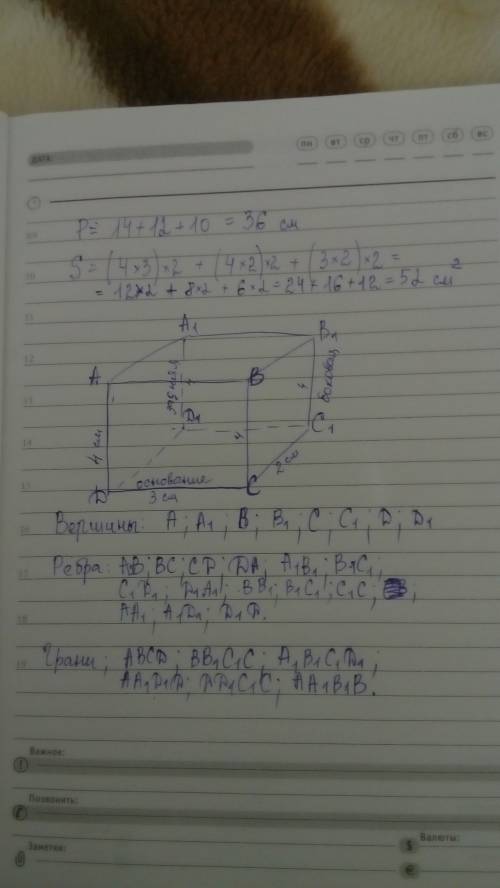 пн вт ср чт пт сб вс
ДАТА:
P = 14+12+10 = 36 см
S = (4×3)×2 + (4×2)×2 + (3×2)×2 =
= 12×2 + 8×2 + 6×2 = 24+16+12 = 52 см²
A1 B1
A B
4 см задняя 4 4 4 боковая
D1 C1
2 см
основание
D 3 см C
Вершины: A; A1; B; B1; C; C1; D; D1
Ребра: AB; BC; CD; DA; A1B1; B1C1;
C1D1; D1A1; BB1; B1C1; C1C;
AA1; A1D1; D1D.
Грани; ABCD; BB1C1C; A1B1C1D1;
AA1D1D; DD1C1C; AA1B1B.
Важное:
Позвонить:
Заметки:
Валюты:
$
€